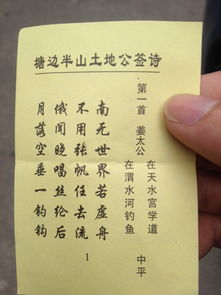 塘边半山土地公签诗
第一首 姜太公 在天水宫学道
在渭水河钓鱼 中平
南无世界若虚舟
不用张帆任去流
俄闻晚唱丝纶后
月落空垂一钓钩
1